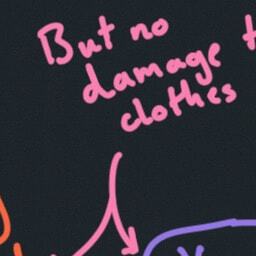 But no
damage
clothes